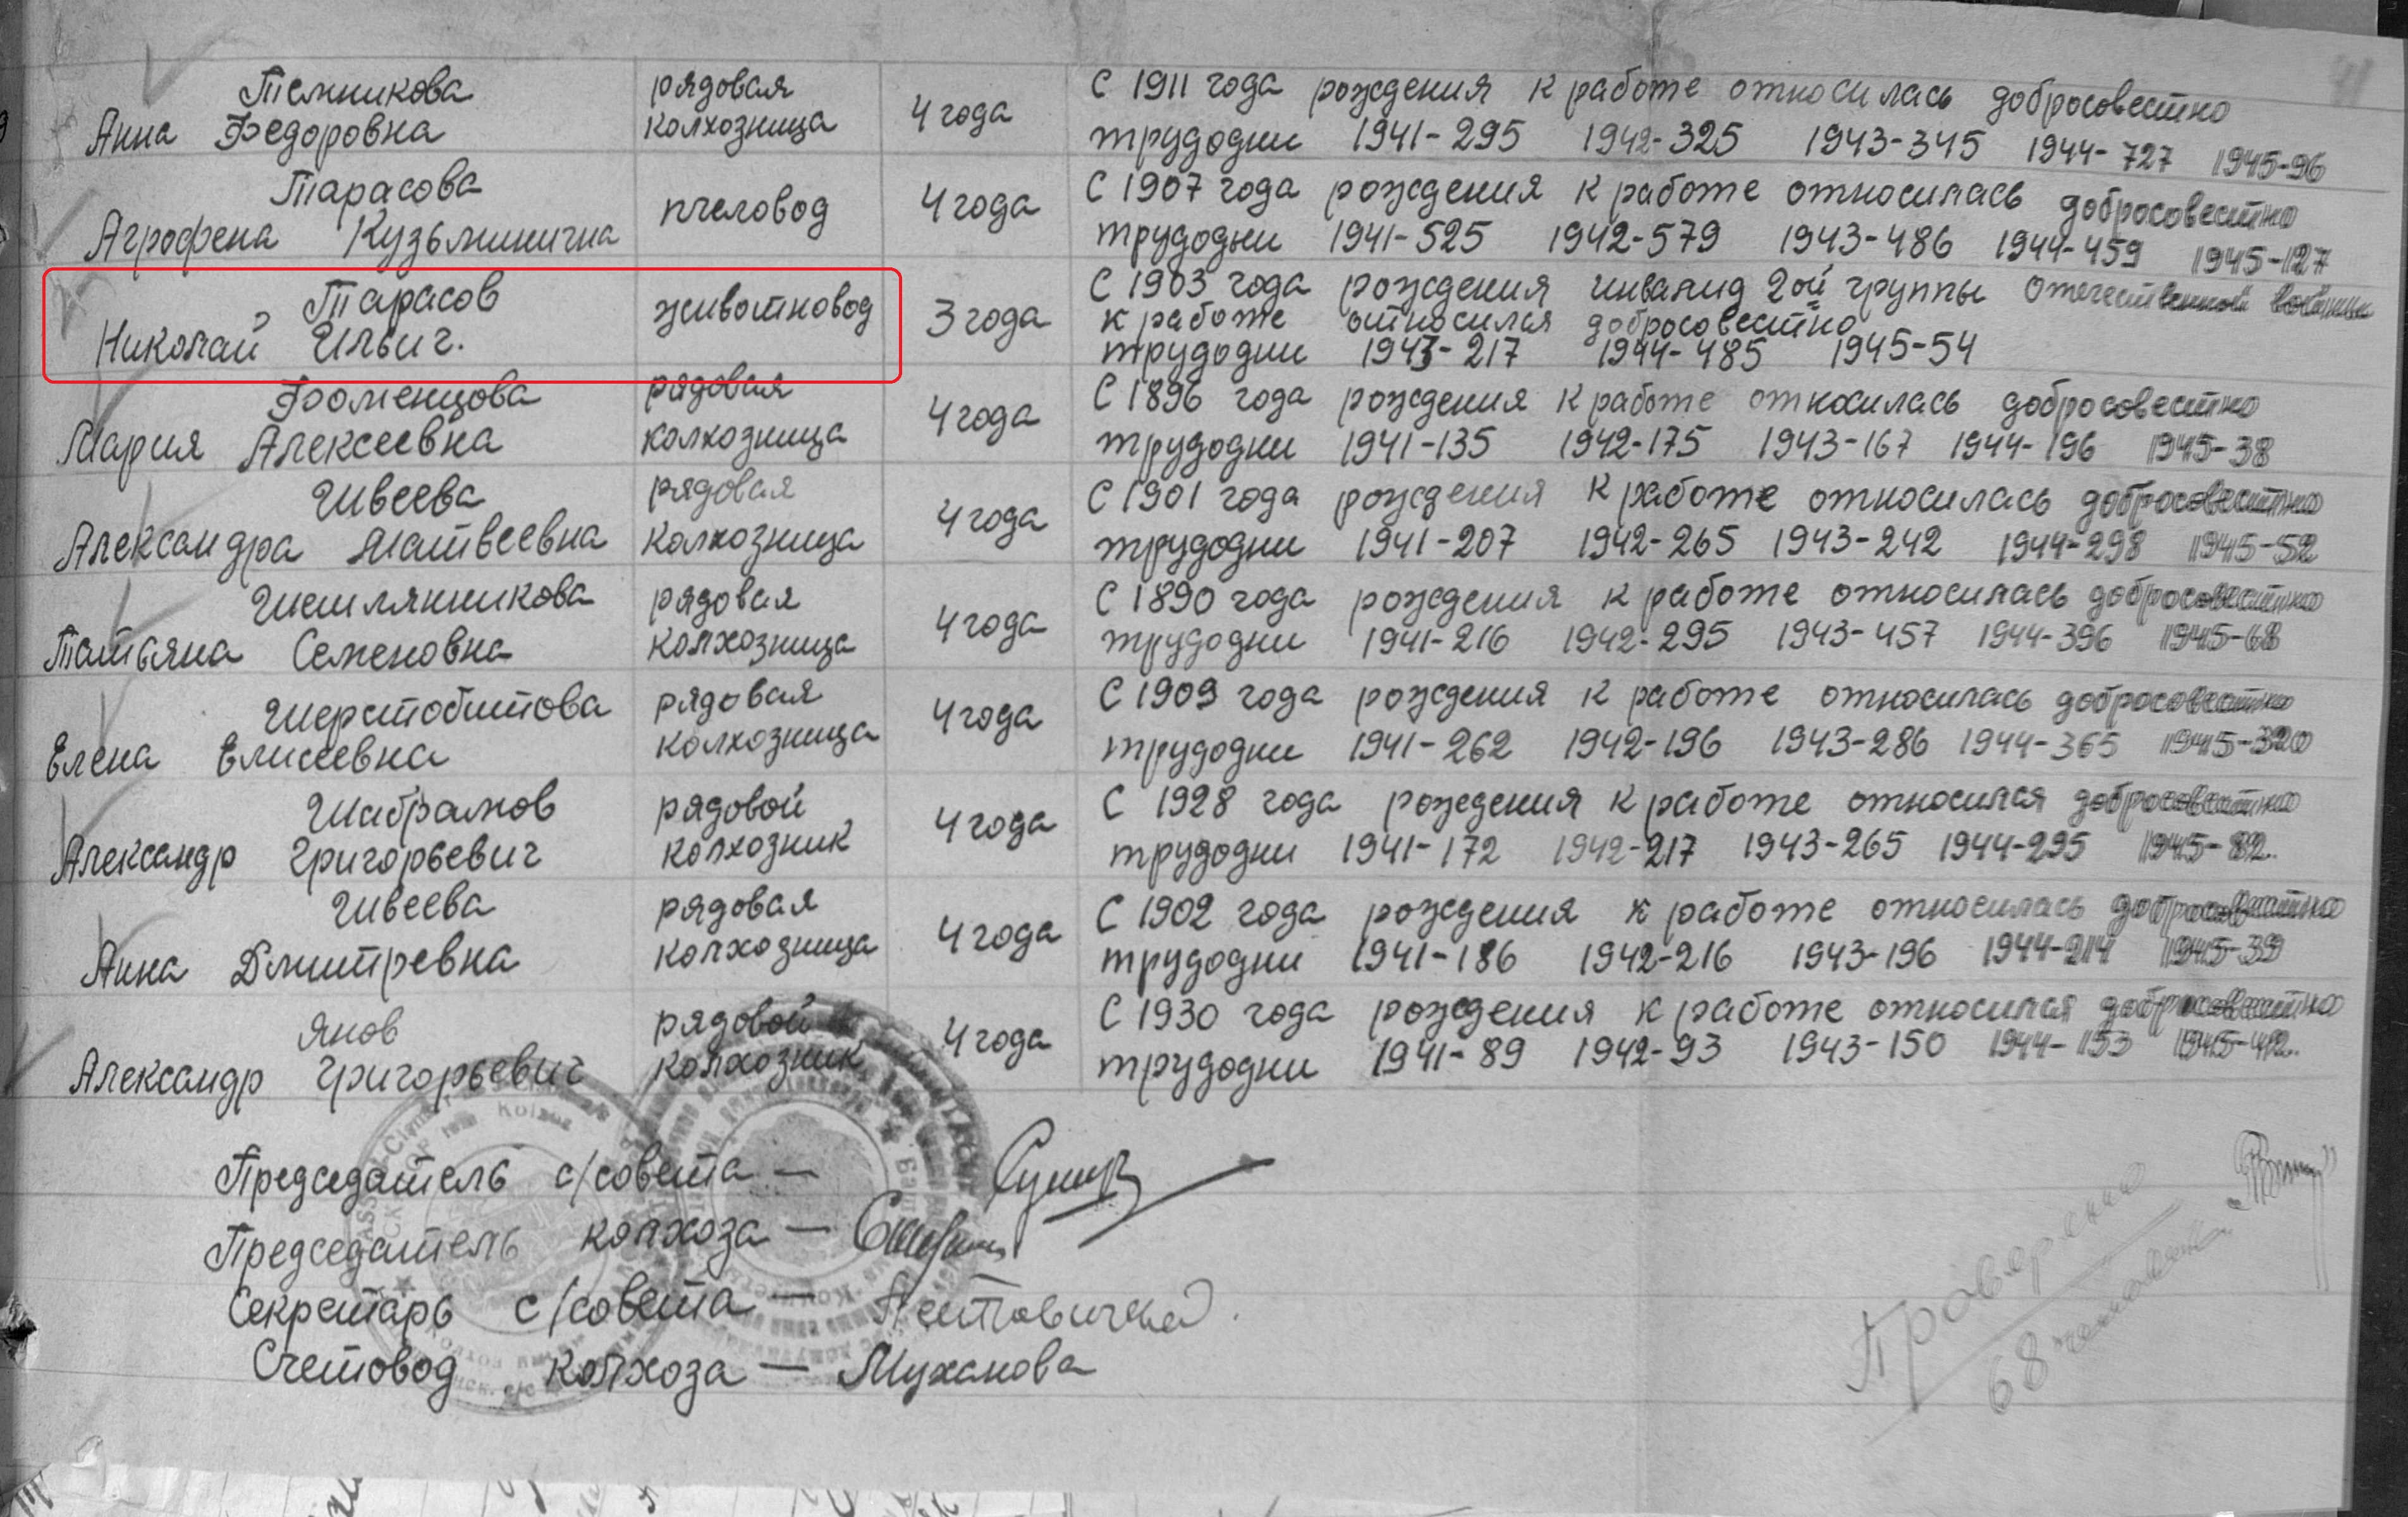 41
Темникова рядовая 4 года С 1911 года рождения к работе относилась добросовестно
Анна Федоровна колхозница трудодни 1941-295 1942-325 1943-345 1944-727 1945-96
Тарасова пчеловод 4 года С 1907 года рождения к работе относилась добросовестно
Агрофена Кузьминична трудодни 1941-525 1942-579 1943-486 1944-459 1945-127
Тарасов животновод 3 года С 1903 года рождения инвалид 2ой группы Отечественной войны
Николай Ильич. к работе относился добросовестно
трудодни 1943-217 1944-485 1945-54
Фоменцова рядовая 4 года С 1896 года рождения к работе относилась добросовестно
Мария Алексеевна колхозница трудодни 1941-135 1942-175 1943-167 1944-196 1945-38
Швеева рядовая 4 года С 1901 года рождения к работе относилась добросовестно
Александра Матвеевна колхозница трудодни 1941-207 1942-265 1943-242 1944-298 1945-52
Шемлянникова рядовая 4 года С 1890 года рождения к работе относилась добросовестно
Татьяна Семеновна колхозница трудодни 1941-216 1942-295 1943-457 1944-396 1945-68
Шерстобитова рядовая 4 года С 1909 года рождения к работе относилась добросовестно
Елена Елисеевна колхозница трудодни 1941-262 1942-196 1943-286 1944-365 1945-320
Шабрамов рядовой 4 года С 1928 года рождения к работе относился добросовестно
Александр Григорьевич колхозник трудодни 1941-172 1942-217 1943-265 1944-295 1945-82.
Швеева рядовая 4 года С 1902 года рождения к работе относилась добросовестно
Анна Дмитревна колхозница трудодни 1941-186 1942-216 1943-196 1944-214 1945-39
Янов рядовой 4 года С 1930 года рождения к работе относился добросовестно
Александр Григорьевич колхозник трудодни 1941-89 1942-93 1943-150 1944-153 1945-42.
Председатель с/совета —
Председатель колхоза —
Секретарь с/совета —
Счетовод колхоза — Муханова
Проверенно
68 человек